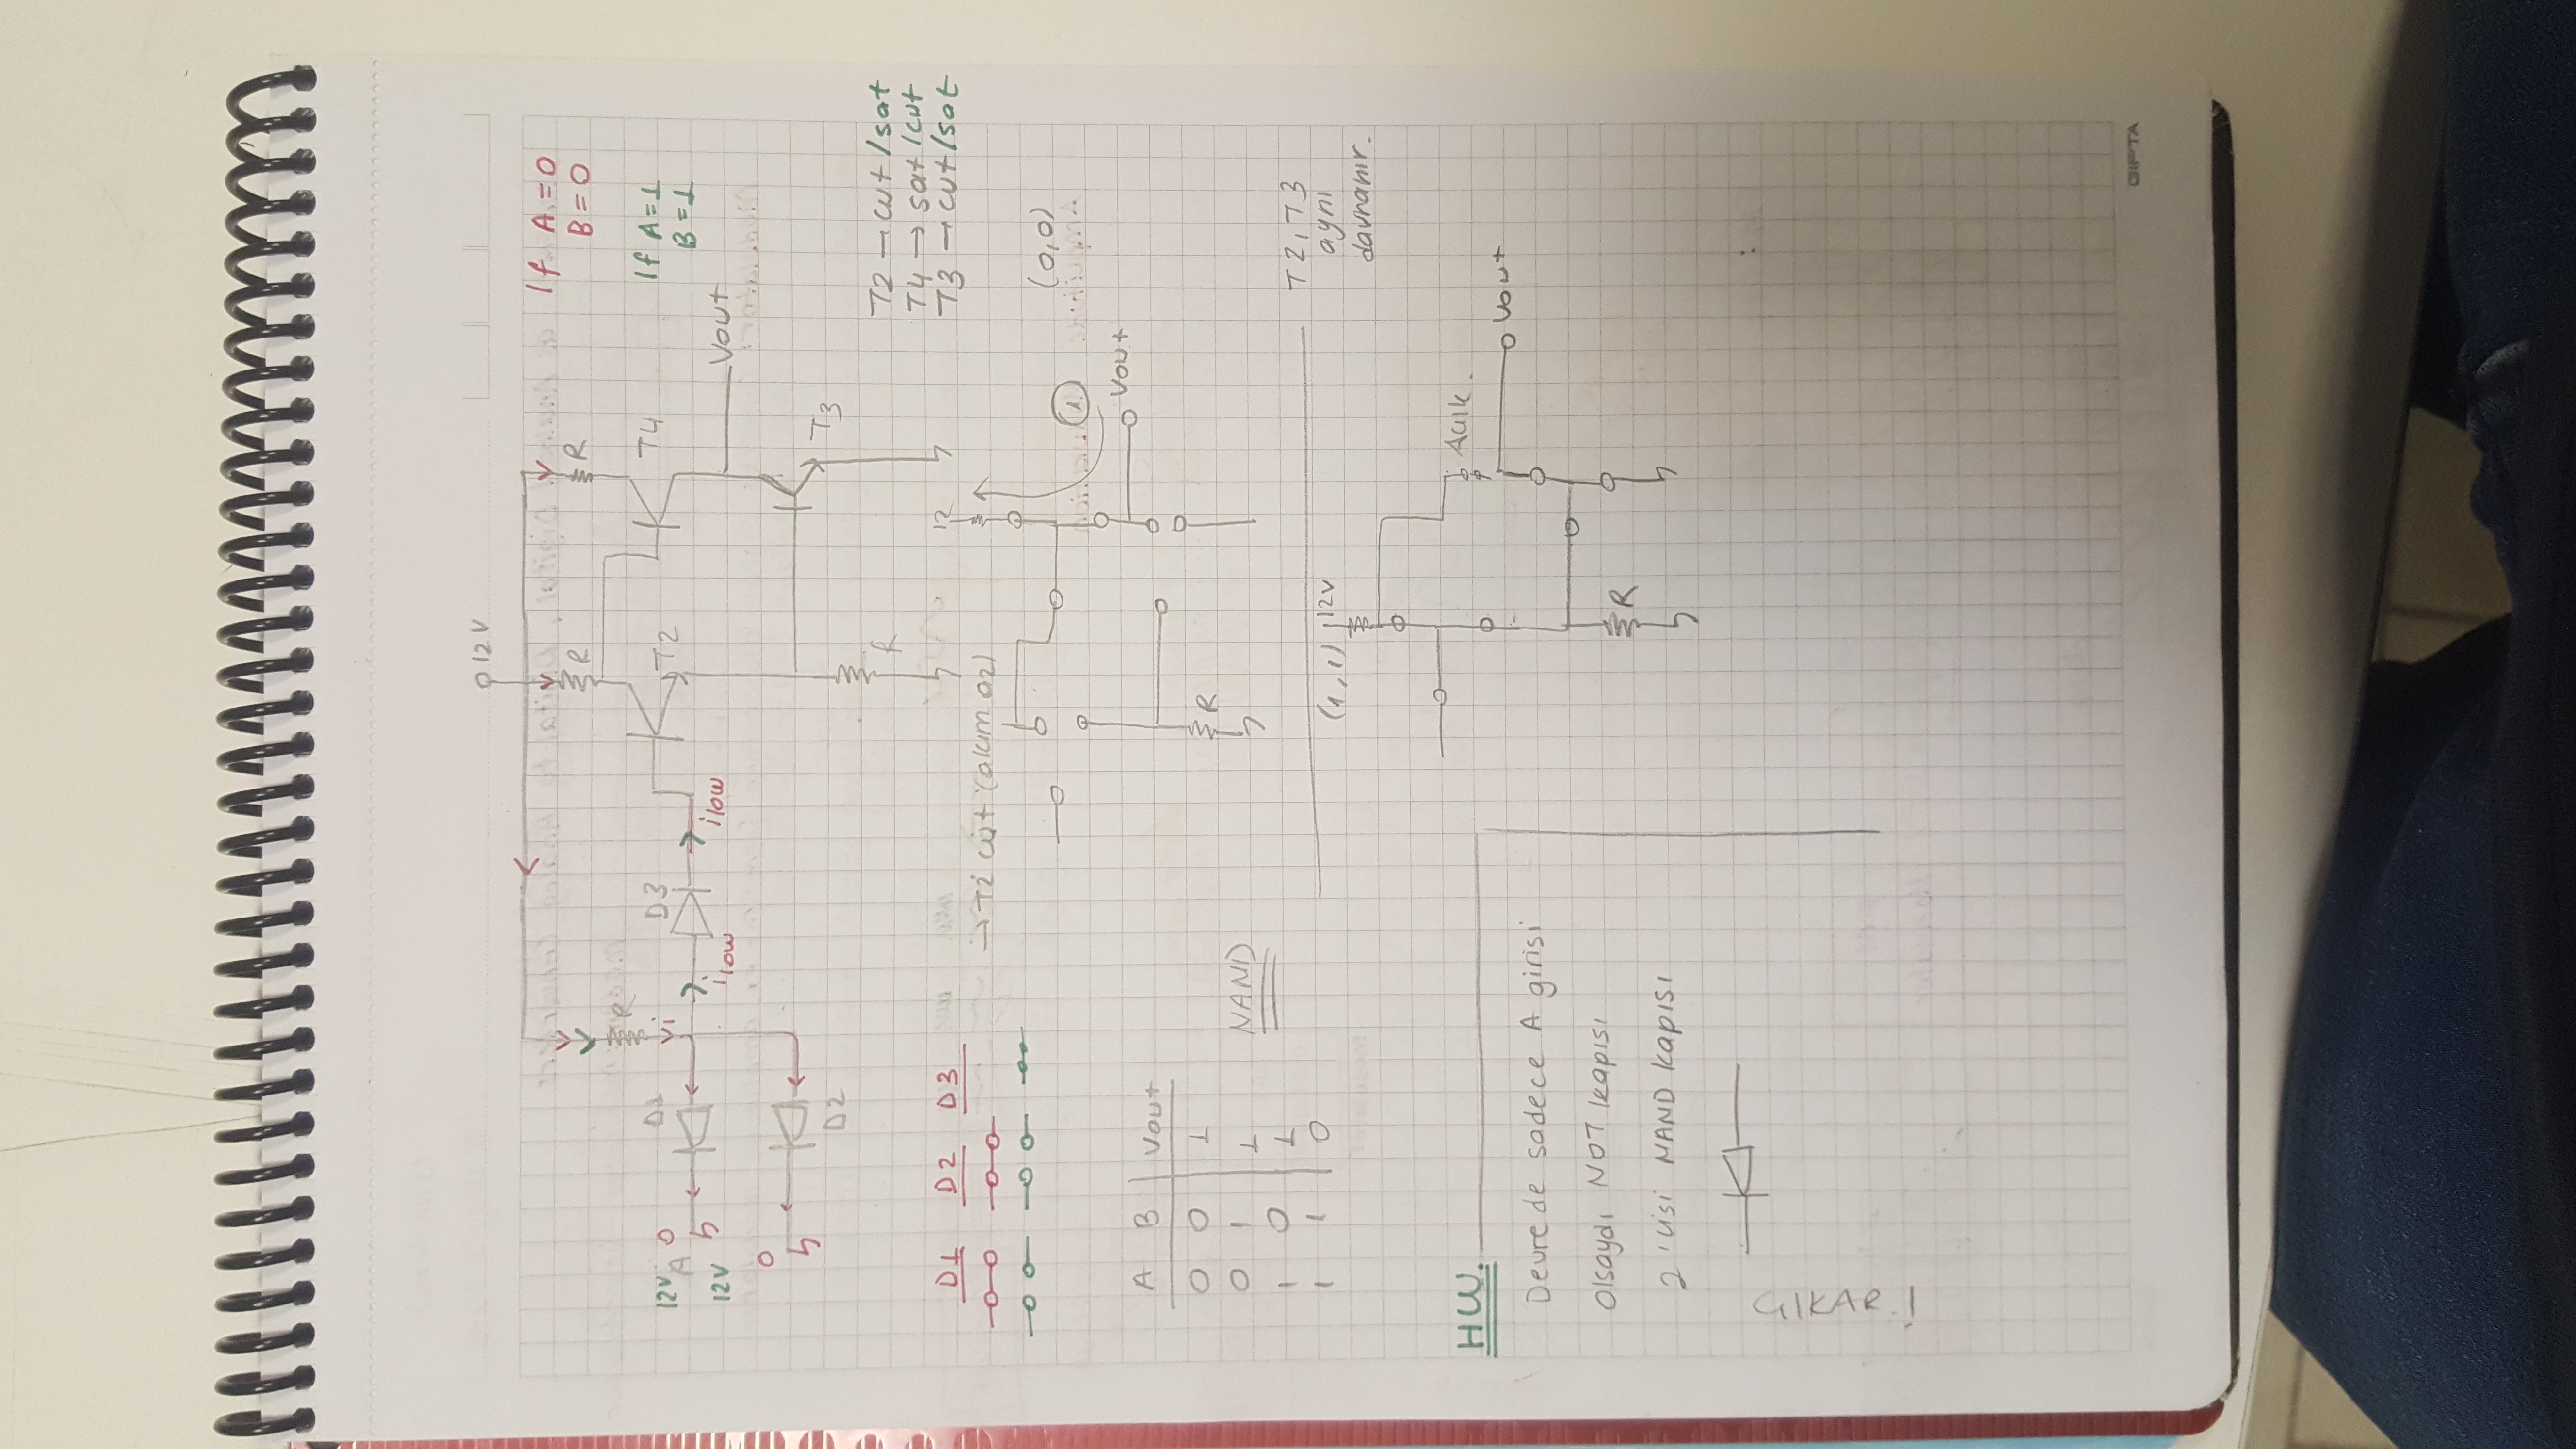 12V
If A=0
B=0
R
R
R
i
12V
A
0
D1
D3
T2
T4
If A=1
B=1
12V
ilow
ilow
Vout
0
D2
T3
R
T2 → cut/sat
T4 → sat/cut
T3 → cut/sat
D1 D2 D3
→ T2 cut (akım az)
12
(0,0)
1
Vout
A B Vout
0 0 1
0 1 1
1 0 1
1 1 0
R
NAND
T2, T3
aynı
davranır.
(1,1)
12V
Açık.
Vout
R
HW.
Devrede sadece A girişi
Olsaydı NOT kapısı
2'lisi NAND kapısı
ÇIKAR!
GIPTA